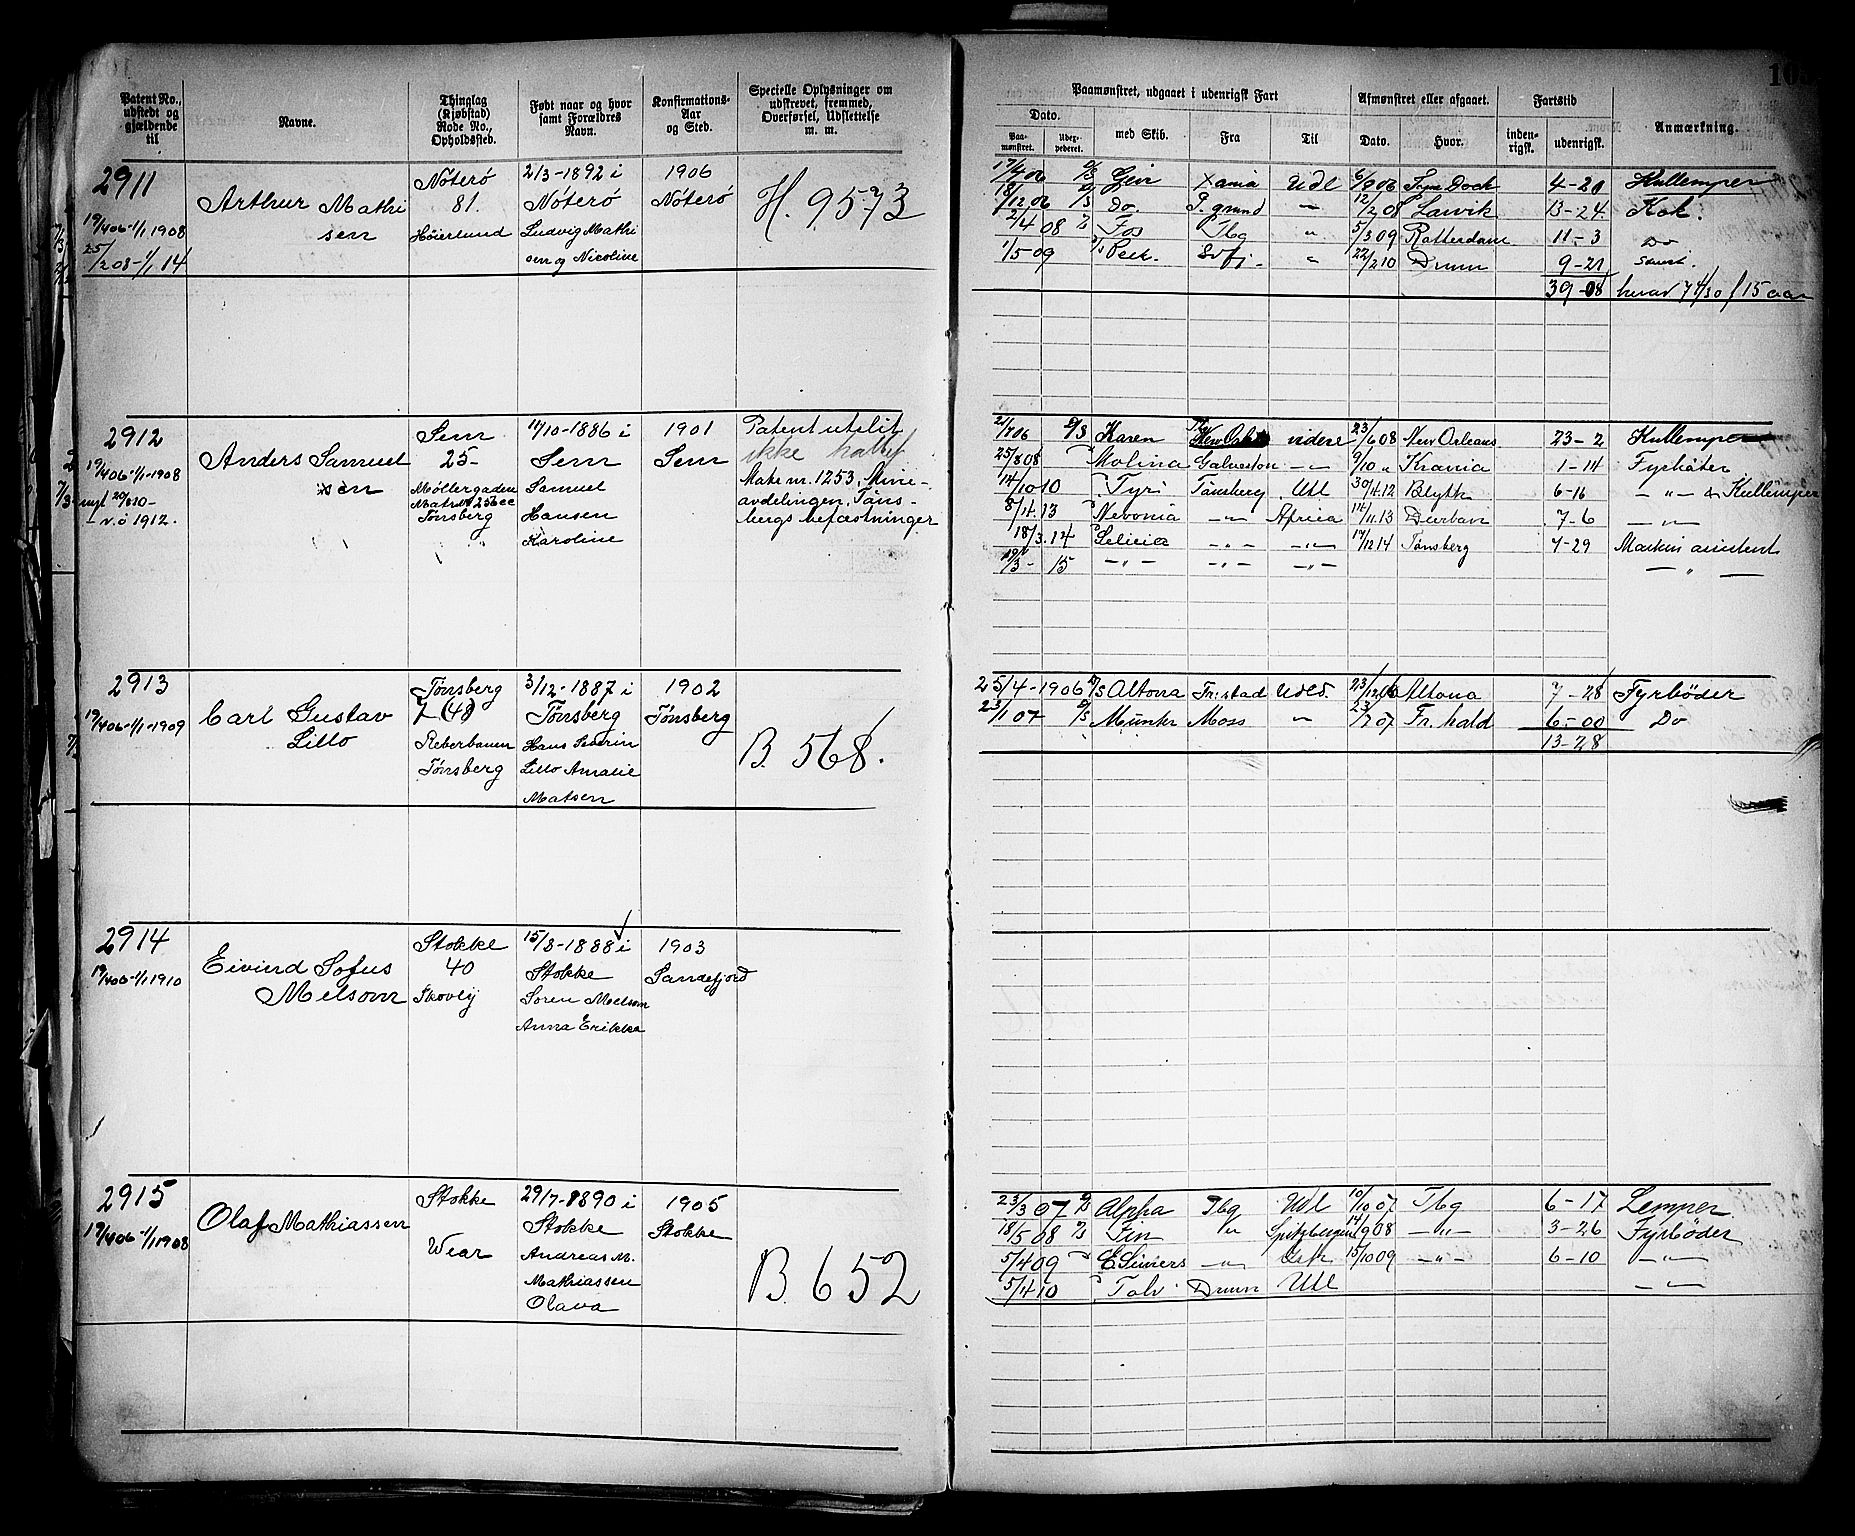 Patent No., udstedt og gjældende til
Navne.
Thinglag (Kjøbstad) Rode No., Opholdssted.
Født naar og hvor samt Forældres Navn.
Konfirmations-Aar og Sted.
Specielle Oplysninger om udskrevet, fremmed, Overførsel, Udslettelse m. m.
2911
19/4 06-1/1 1908
25/2 08-1/1 14
Arthur Mathi
sen
Nöterö
81.
Høierlund
2/3-1892 i
Nöterö
Ludvig Mathi
sen og Nicoline
1906
Nöterö
H. 9573
2912
19/4 06-1/1-1908
nyt 20/8 10-
n.ö 1912.
Anders Samuel
sen
Sem
25-
Møllergaden
Matr.nr 256cc
Tønsberg
17/10-1886 i
Sem
Samuel
Hansen
Karoline
1901
Sem
Patent utelit
ikke halby
Matr. nr. 1253, Mine-
avdelingen, Töns-
bergs befæstninger
2913
19/4 06-1/1-1909
Carl Gustav
Lillo
Tønsberg
7-(48)
Reberbanen
Tønsberg
3/12-1887 i
Tønsberg
Hans Severin
Lillo Amalie
Matsen
1902
Tønsberg
B. 568.
2914
19/4 06-1/1 1910
Eivind Sofus
Melsom
Stokke
40
Skovly
15/8-1888 i
Stokke
Soren Melsom
Anna Erikka
1903
Sandefjord
2915
19/4 06-1/1 1908
Olaf Mathiassen
Stokke
Wear
29/7-1890 i
Stokke
Andreas M.
Mathiassen
Olava
1905
Stokke
B. 652
Paamønstret, udgaaet i udenrigsk Fart
Afmønstret eller afgaaet.
Fartstid
Anmærkning.
Dato.
Paamønstret.
Uderpederet.
med Skib.
Fra
Til
Dato.
Hvor.
indenrigsk.
udenrigsk.
17/4 06 Geir Xania Udl 6/8 06 Tyne Dock 4-20 Kullemper
18/12 06 Do. P. grund " 12/2 08 Larvik 13-24 Kok.
2/4 08 Fos Tbg " 5/3 09 Rotterdam 11-3 Do
1/5 09 " 22/2 10 Drmn 9-21
39-08 herav 7 4/30 f 15 aar
21/7 06 D/S Karen New Orl videre 23/6 08 New Orleans 23-2 Kullemper
25/8 08 " Molina Galveston -"- 9/10 " Xrania 1-14 Fyrböter
14/10 10 " Tyri Tønsberg Utl 30/4 12 Blyth 6-16 -"- & Kullemper
8/4 13 " Nevonia -"- Africa 14/11 13 Durban 7-6 -"-
18/3 14 " -"- -"- 17/12 14 Tønsberg 7-29 Maskin assistent
19/3-15 -"- -"- -"- -"-
25/4-1906 D/S Altona Fr.stad Udld. 23/12 06 Altona 7-28 Fyrbøder
23/1 07 D/S Munter Moss " 23/7 07 Fr. hald 6-00 Do
13-28
23/3 07 D/S Alpha Tbg Udl 10/10 07 Tbg 6-17 Lemper
18/5 08 D/S Fin " Spitzbergen 14/9 08 -"- 3-26 Fyrbøder
5/4 09 " -"- 15/10 09 -"- 6-10 -"-
5/4 10 " Drmn Utl -"-